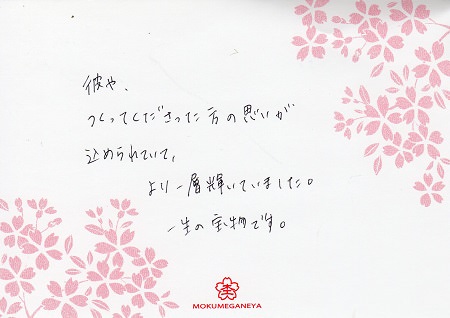 彼や、
つくってくださった方の思いが
込められていて、
より一層輝いていました。
一生の宝物です。
MOKUMEGANEYA